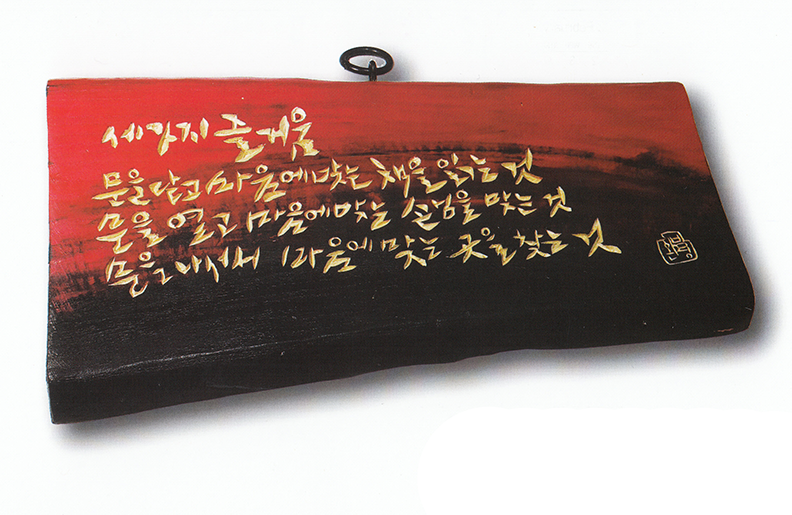 세가지 즐거움
문을 닫고 마음에 맞는 책을 읽는 것
문을 열고 마음에 맞는 손님을 맞는 것
문을 나서서 마음에 맞는 곳을 찾는 것